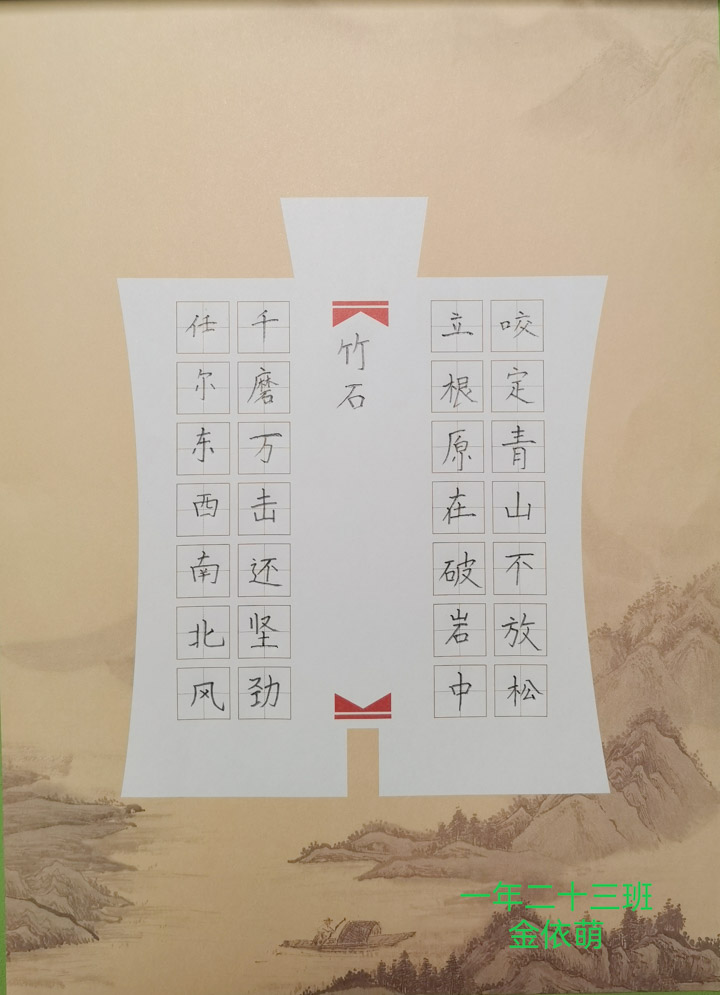 咬定青山不放松
立根原在破岩中
竹石
千磨万击还坚劲
任尔东西南北风
一年二十三班
金依萌